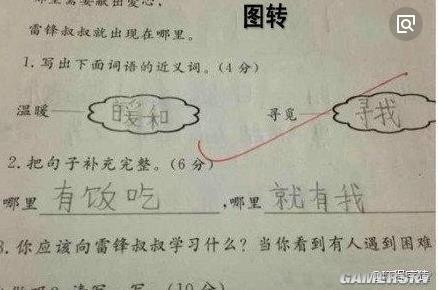 图转
哪里需要献出爱心,
雷锋叔叔就出现在哪里。
1.写出下面词语的近义词。(4分)
温暖 暖和 寻觅 寻找
2.把句子补充完整。(6分)
哪里 有饭吃 ,哪里 就有我
3.你应该向雷锋叔叔学习什么?当你看到有人遇到困难
GAMERSKY
(10分)